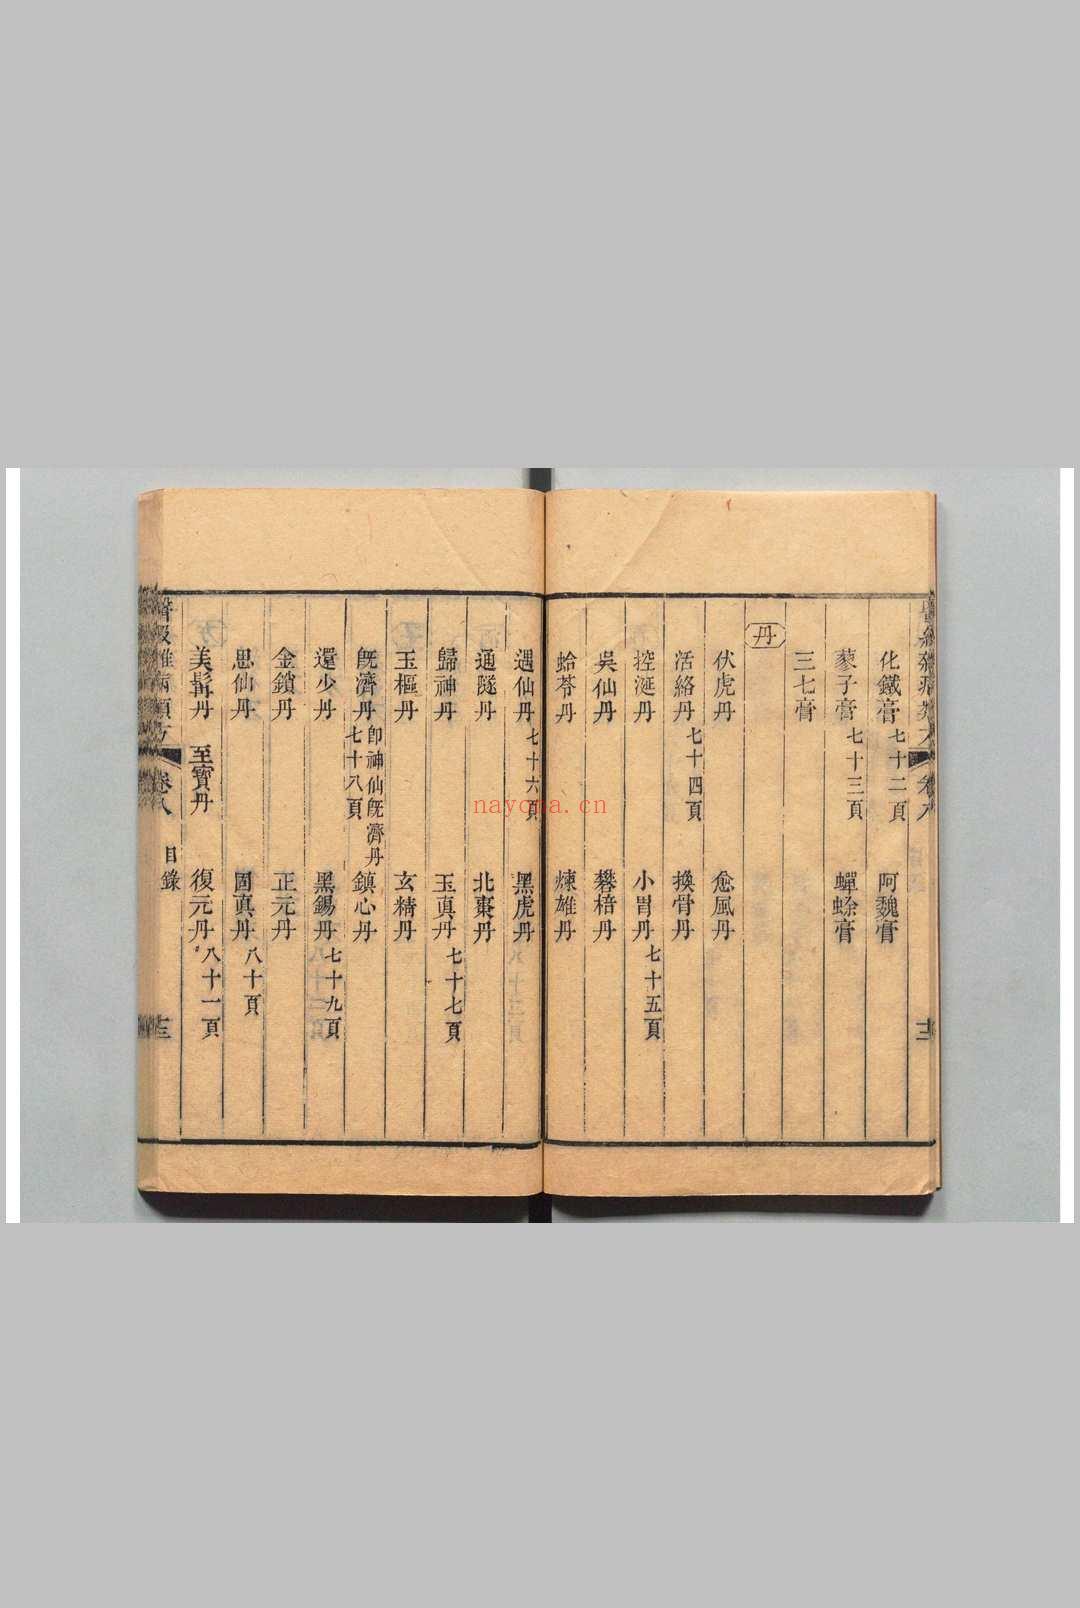 化鐵膏 七十二頁 阿魏膏
蒙子膏 七十三頁 蟬蜍膏
三七膏
丹
伏虎丹 愈風丹
活絡丹 七十四頁 換骨丹
控涎丹 小胃丹 七十五頁
吳仙丹 礬棓丹
蛤苓丹 煉雄丹
遇仙丹 七十六頁 黑虎丹
通隧丹 北棗丹
歸神丹 玉真丹 七十七頁
玉樞丹 玄精丹
既濟丹 即神仙既濟丹 七十八頁 鎮心丹
還少丹 黑錫丹 七十九頁
金鎖丹 正元丹
思仙丹 固真丹 八十頁
美髯丹 至寶丹 復元丹 八十一頁
卷八 目錄
nayona.cn